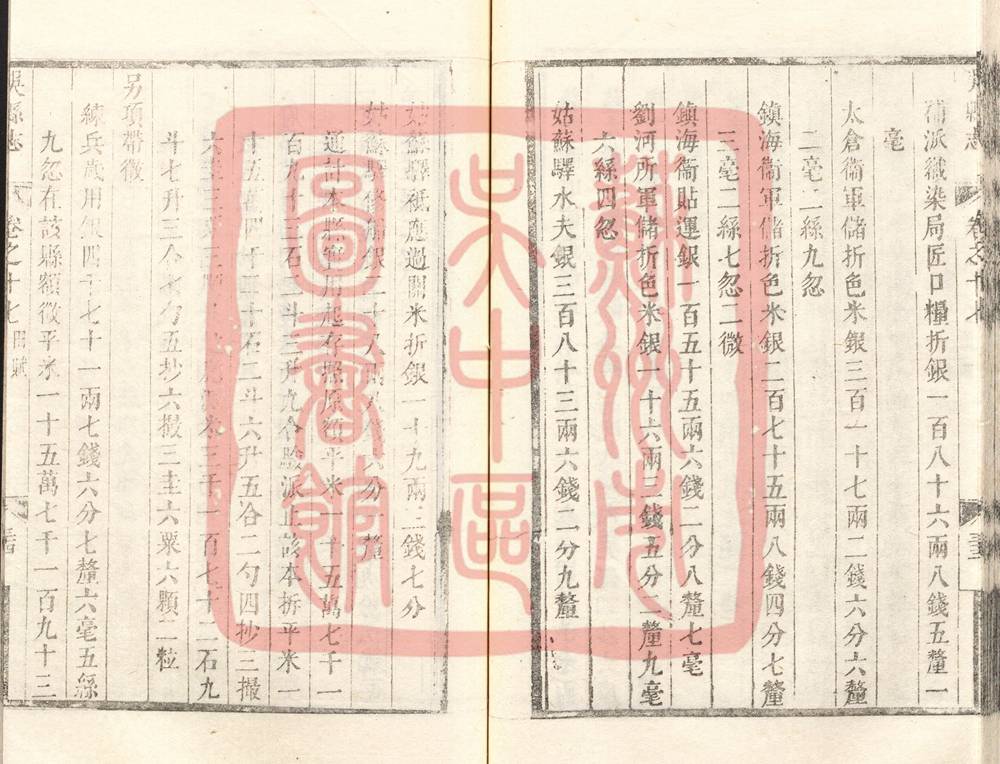 補派織染局匠口糧折銀一百八十六兩八錢五釐一
毫
太倉衞軍儲折色米銀三百一十七兩二錢六分六釐
二毫二絲九忽
鎮海衞軍儲折色米銀二百七十五兩八錢四分七釐
三毫二絲七忽二微
鎮海衞貼運銀一百五十五兩六錢二分八釐七毫
劉河所軍儲折色米銀一十六兩三錢五分二釐九毫
六絲四忽
姑蘇驛水夫銀三百八十三兩六錢二分九釐
姑蘇驛祇應過關米折銀一十九兩二錢七分
姑蘇驛修船銀二十八兩八錢六分一釐
通計本縣實用起存照原額平米一十五萬七千一
百九十三石二斗三升九合驗派正該本折平米一
十五萬四千二十石二斗六升五合二勺四抄三撮
六圭三粟三顆 米三千一百七十二石九
斗七升三合七勺五抄六撮二圭六粟六顆二粒
另項帶徵
練兵歲用銀四千七十一兩七錢六分七釐六毫五絲
九忽在該縣額徵平米一十五萬七千一百九十三
吳縣志
卷之十七 田賦
蘇州市
吳中區
圖書館